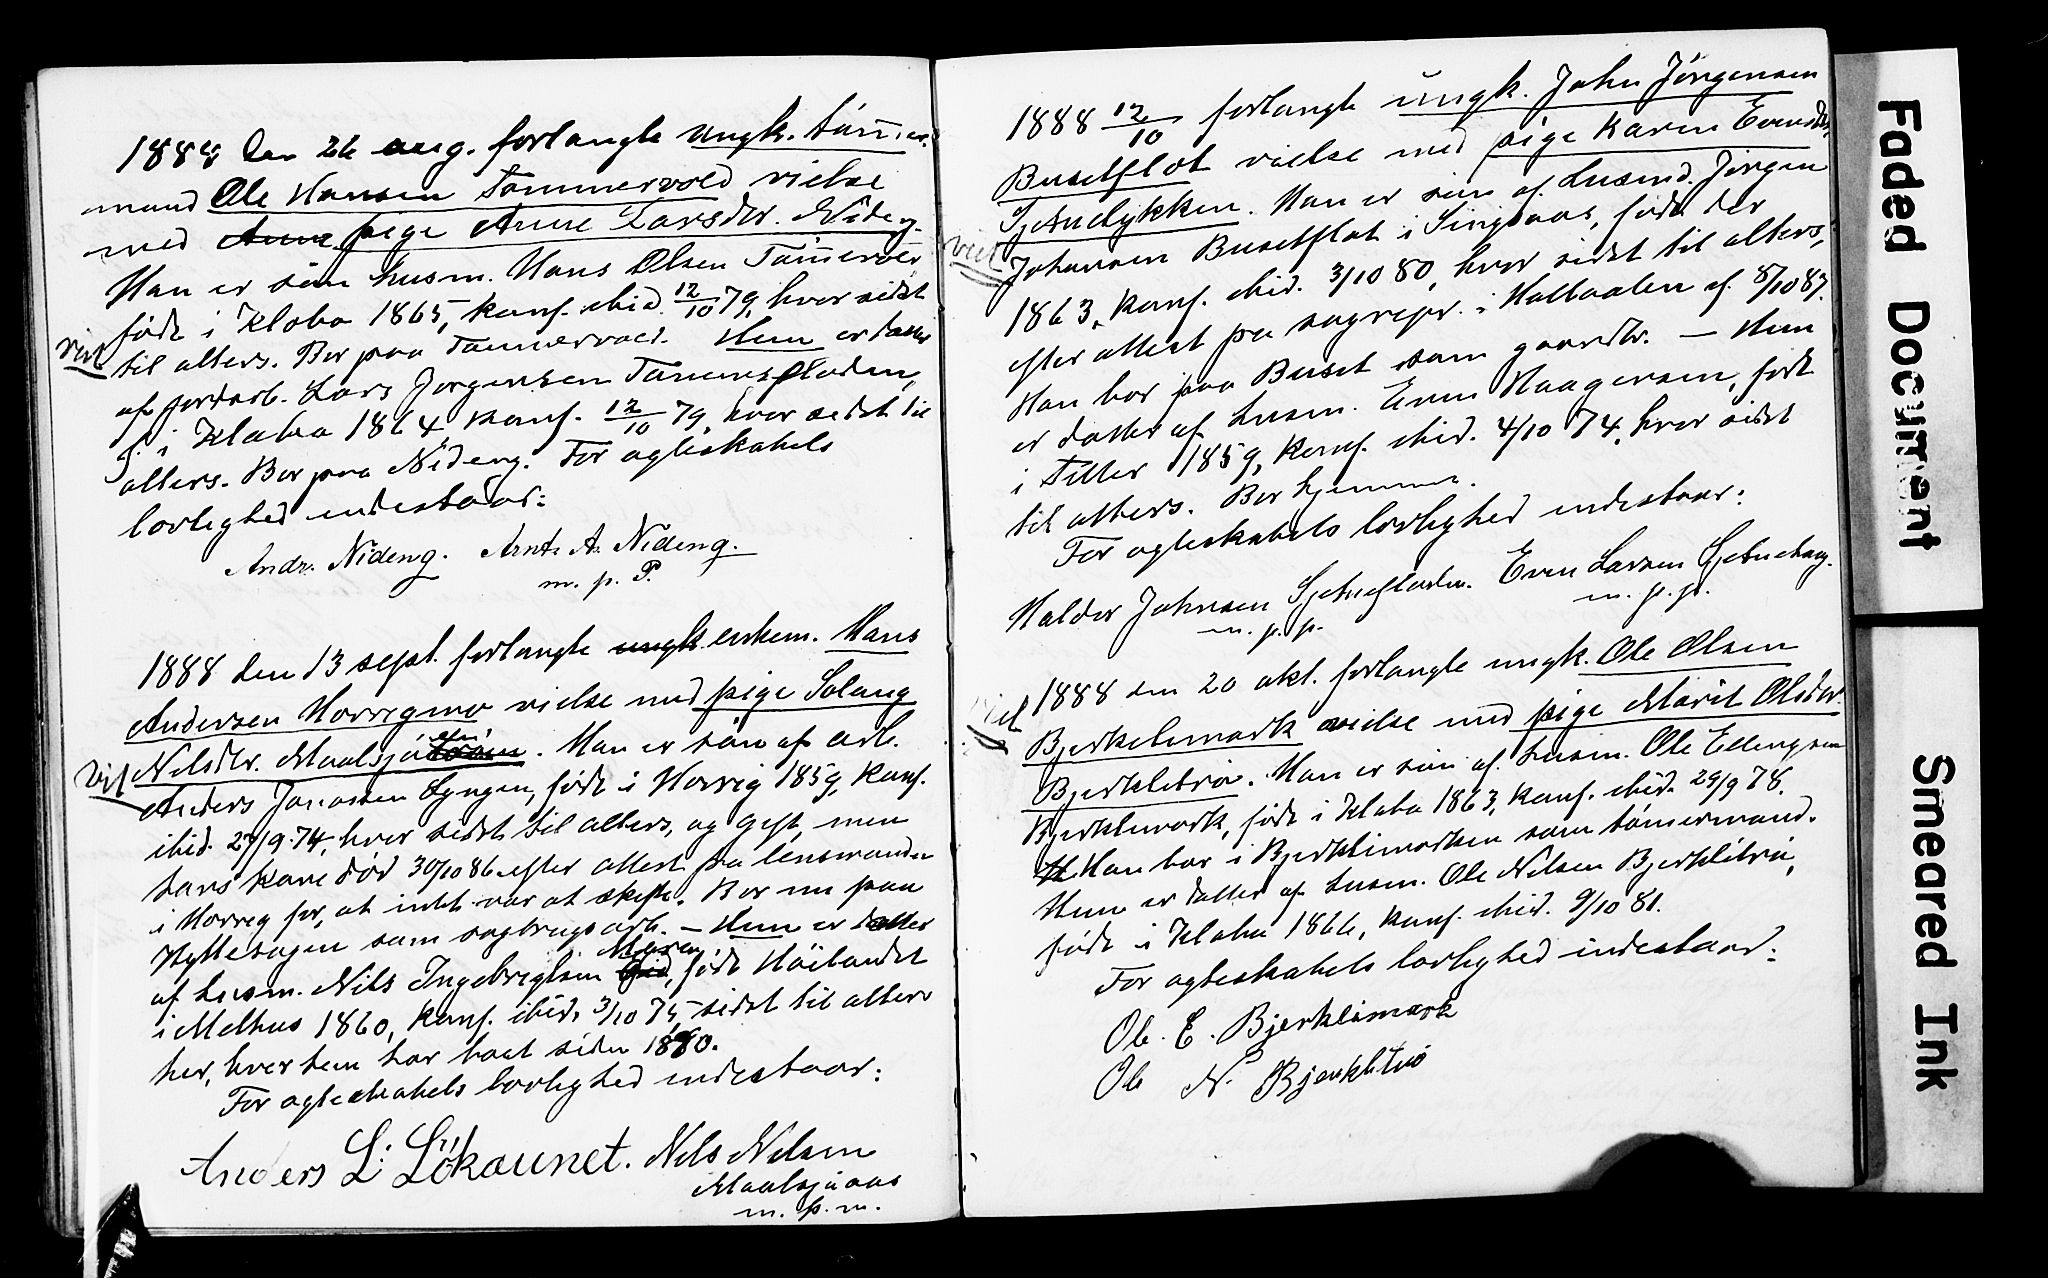 1888 den 26 aug. forlangte ungk. tømmer-
mand Ole Hansen Tømmervold vielse
med Anne pige Anne Larsdtr. Nideng.
Han er søn husm. Hans Olsen Tømmervold
født i Klæbo 1865, konf. ibid. 12/10 79, hvor sidst
viet
til alters. Bor paa Tømmervold. Hun er datter
af jordarb. Lars Jørgensen Tanemsfloden,
f. i Klæbo 1864 konf. 12/10 79, hvor sidst til
alters. Bor paa Nideng. For ægteskabets
lovlighed indestaar:
Andr. Nideng. Arnt A. Nideng.
m. p. P.
1888 den 13 sept. forlangte ungk. enkem. Hans
Andersen Horrigmo vielse med pige Solaug
Nilsdtr. Maalsjø
Viet
. Han er søn af arb.
Anders Jonassen Øyngen, født i Horrig 1859, konf.
ibid. 27/9 74, hvor sidst til alters, og gift, men
hans kone død 30/10 86 efter attest fra lensmanden
i Horrig for, at intet var at skifte. Bor nu paa
Hyttesagen som sagbrugsarb. – Hun er datter
af husm. Nils Ingebrigtsen Maaen, født Høilandet
i Melhus 1860, konf. ibid. 3/10 75, sidst til alters
her, hvor hun har boet siden 1880.
For ægteskabets lovlighed indestaar:
Anders L: Lökaunet. Nils Nilsen
Maalsjøaas
m. p. m.
1888 12/10 forlangte ungk. John Jörgensen
Busetflot vielse med pige Karen Evensdtr.
Sjetnelykken. Han er søn af husmd. Jørgen
viet
Johansen Busetflot i Singsaas, født der
1863, konf. ibid. 3/10 80, hvor sidst til alters,
efter attest fra sogrepr. i Holtaalen af 8/10 87.
Han bor paa Buset som gaardbr. – Hun
er datter af husm. Even Haagensen, født
i Tiller 1859, konf. ibid. 4/10 74, hvor sidst
til alters. Bor hjemme.
For ægteskabets lovlighed indestaar:
Haldor Johnsen Sjetnefloden. Even Larsen Sjetnehaug.
m. p. p.
m. p. p.
1888 den 20 okt. forlangte ungk. Ole Olsen
viet
Bjerklimark vielse med pige Marit Olsdtr.
Bjerklitrø. Han er søn af husm. Ole Ellingsen
Bjerklimark, født i Klæbo 1863, konf. ibid. 29/9 78.
H Han bor i Bjerklimarken som tømmermand.
Hun er datter af husm. Ole Nilsen Bjerklitrø,
født i Klæbo 1866, konf. ibid. 9/10 81.
For ægteskabets lovlighed indestaar:
Ole. E. Bjerklimark
Ole N. Bjerklitrø
Faded Document
Smeared Ink